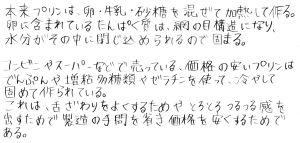 本来プリンは、卵・牛乳・砂糖を混ぜて加熱して作る。
卵に含まれているたんぱく質は、網の目構造になり、
水分がその中に閉じ込められるので固まる。
コンビニやスーパーなどで売っている、価格の安いプリンは
でんぷんや増粘多糖類やゼラチンを使って、冷やして
固めて作られている。
これは、舌ざわりをよくするためや とろとろ つるつる感を
出すためで 製造の手間を省き価格を安くするためで
ある。